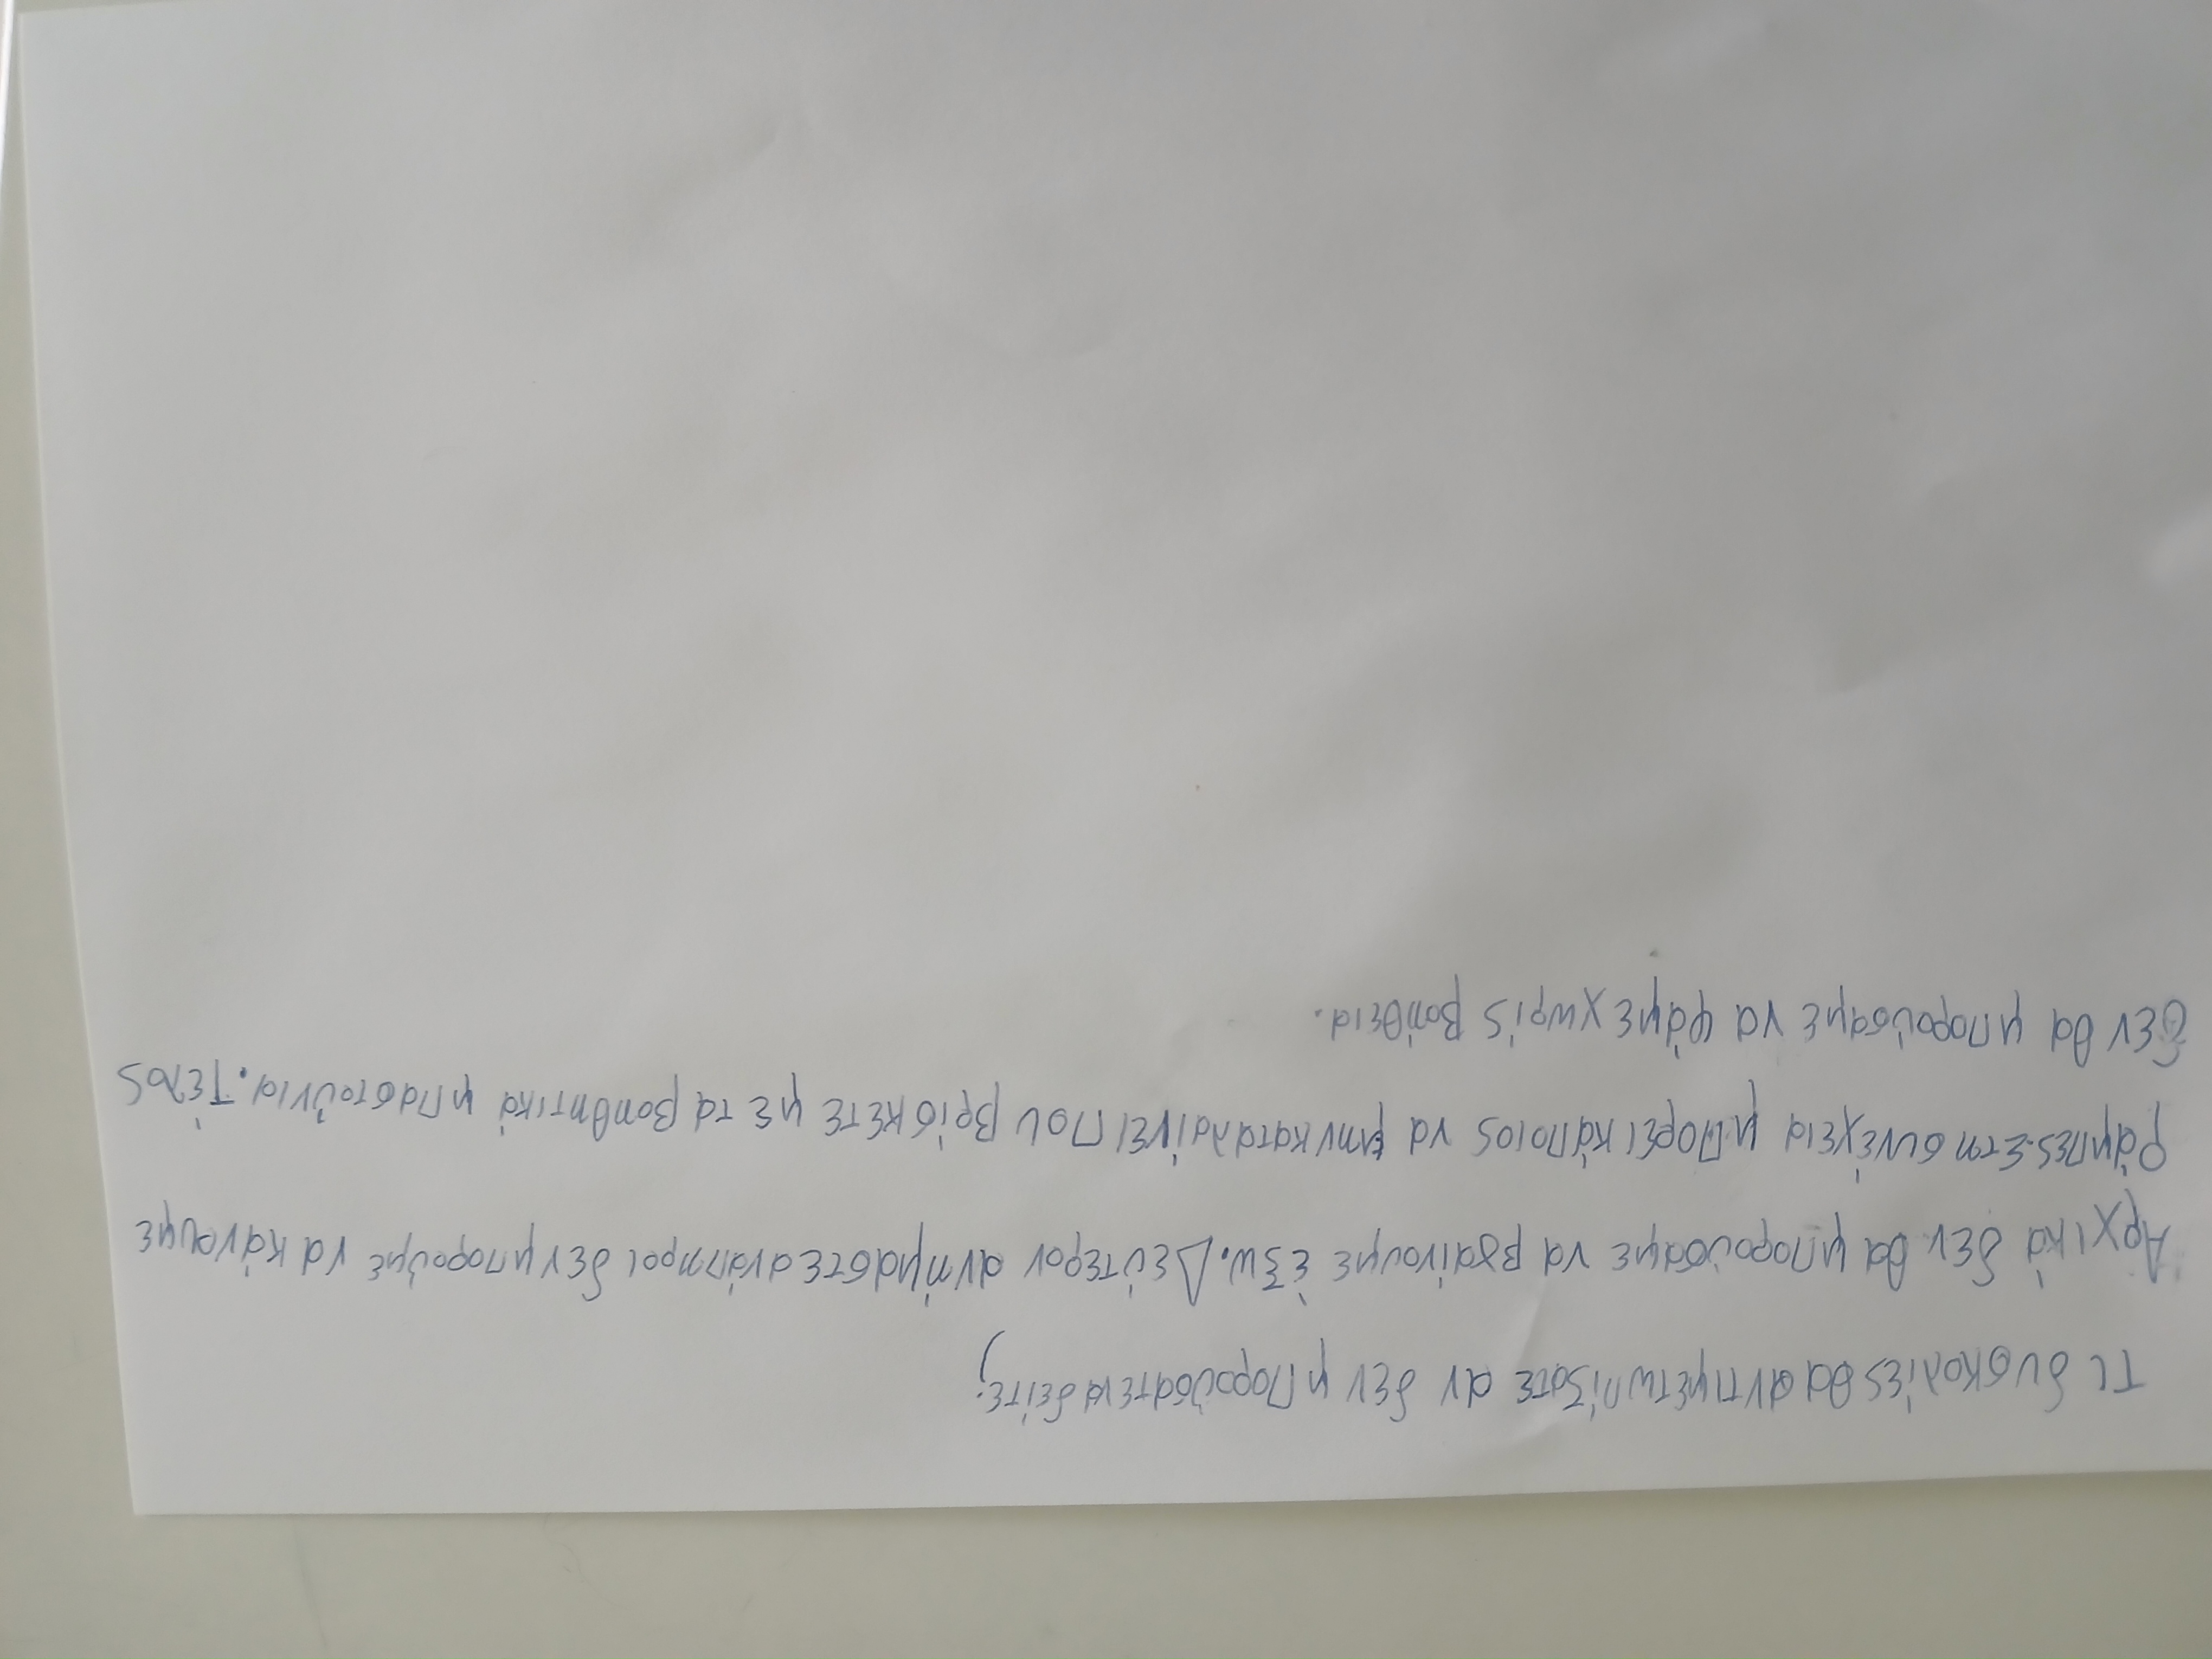 Τι δυσκολίες θα αντιμετωπίζατε αν δεν μπορούσατε να δείτε;
Αρχικά δεν θα μπορούσαμε να βγαίνουμε έξω. Δεύτερον αν ήμαστε ανάπηροι δεν μπορούμε να κάνουμε
ράμπες. Στη συνέχεια μπορεί κάποιος να μην καταλαίνει που βρίσκετε με τα βοηθητικά μπαστούνια. Τέλος
δεν θα μπορούσαμε να φάμε χωρίς βοήθεια.